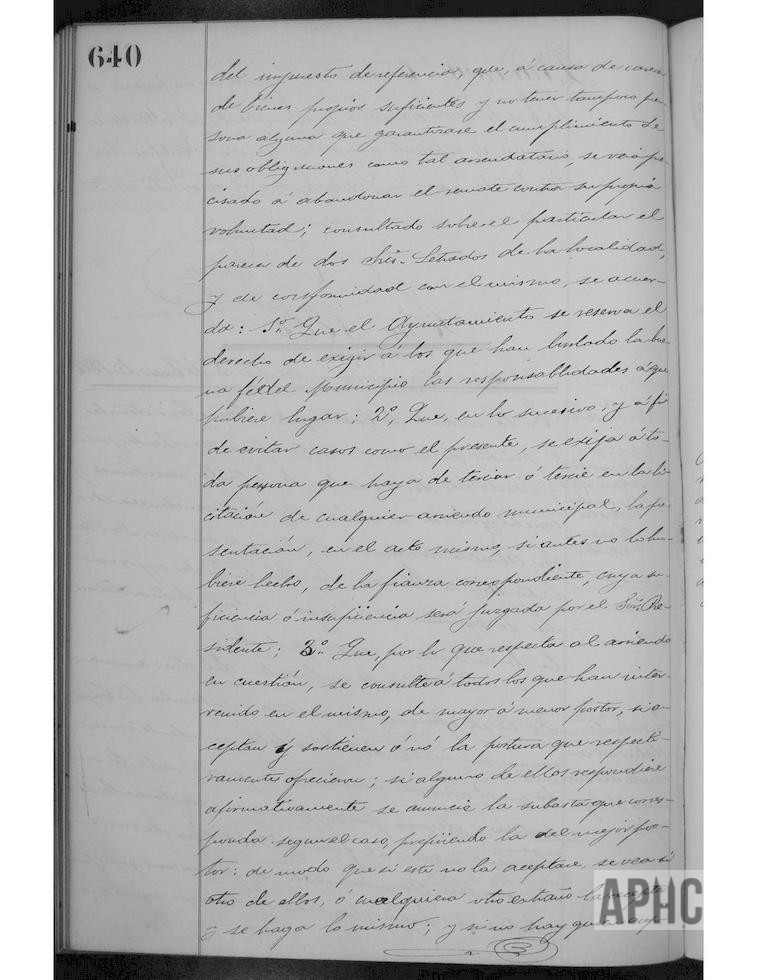 640
del impuesto de referencia, que, á causa de carecer
de bienes propios suficientes y no tener tampoco per-
sona alguna que garantizase el cumplimiento de
sus obligaciones como tal arrendatario, se veia pre-
cisado á abandonar el remate contra su propia
voluntad; consultado sobre el particular el
parecer de dos Sres. Letrados de la localidad,
y de conformidad con el mismo, se acuer-
da: 1º. Que el Ayuntamiento se reserva el
derecho de exigir á los que han burlado la bue-
na fé del Municipio las responsabilidades á que
hubiere lugar; 2º. Que, en lo sucesivo, y á fin
de evitar casos como el presente, se exija á to-
da persona que haya de terciar ó tercie en la li-
citación de cualquier arriendo municipal, la pre-
sentación, en el acto mismo, si antes no lo hu-
biere hecho, de la fianza correspondiente, cuya su-
ficiencia ó insuficiencia será juzgada por el Sor. Pre-
sidente; 3º. Que, por lo que respecta al arriendo
en cuestión, se consulte á todos los que han inter-
venido en el mismo, de mayor á menor postor, si a-
ceptan y sostienen ó nó la postura que respecti-
vamente ofrecieron; si alguno de ellos respondiere
afirmativamente se anuncie la subasta que corres-
ponda segun el caso, prefiriendo la del mejor pos-
tor: de modo que si este no la aceptare, se vea si
otro de ellos, ó cualquiera otro extraño la acepta
y se haga lo mismo; y si no hay quien
APHC